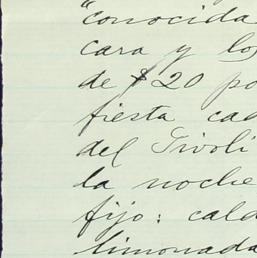 "conocida
cara y los
de $20 po
fiesta cad
del Tivoli
la noche
fijo: cald
limonada